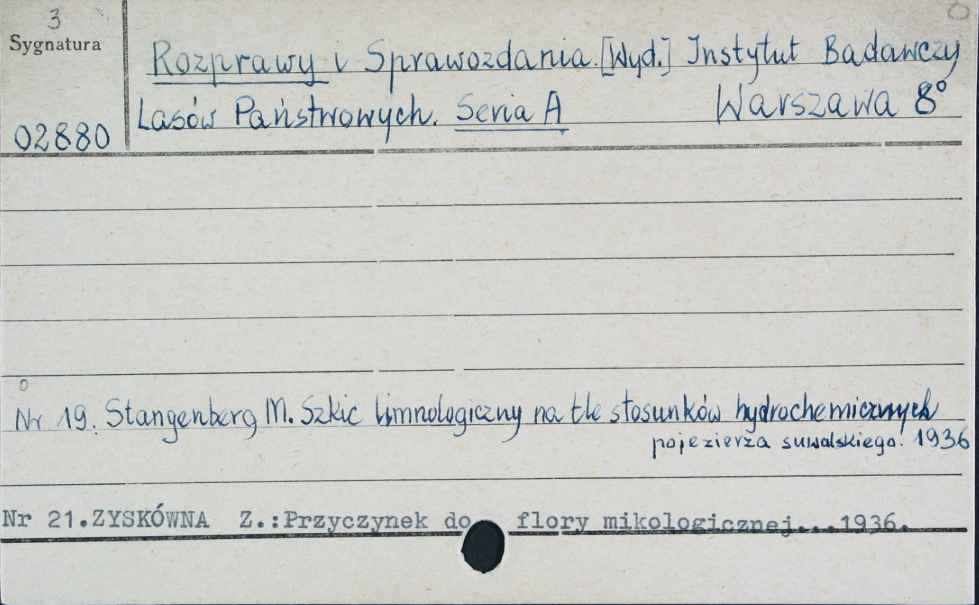 3
Sygnatura
02880
Rozprawy i Sprawozdania. [Wyd.] Instytut Badawczy
Lasów Państwowych. Seria A Warszawa 8°
Nr 19. Stangenberg M. Szkic limnologiczny na tle stosunków hydrochemicznych
pojezierza suwalskiego. 1936
Nr 21.ZYSKÓWNA Z.:Przyczynek do flory mikologicznej...1936.